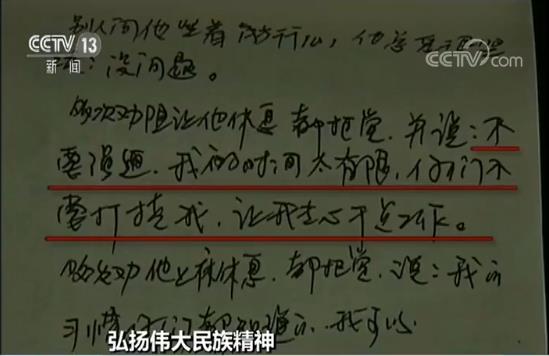 CCTV 13
新闻
CCTV.com
别人问他坐着能行么，他总是
：没问题。
多次劝阻让他休息都拒绝，并说：不
要强迫，我的时间太有限，你们不
要打扰我，让我专心干点工作。
多次劝他上床休息，都拒绝，说：我的
习惯你们都知道的，我可以
弘扬伟大民族精神